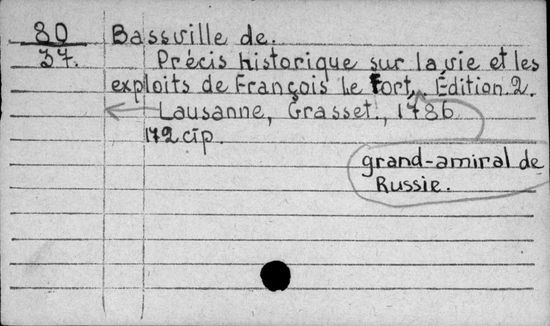 80 Bassville de.
37. Précis historique sur la vie et les
exploits de François Le Fort, Édition. 2.
Lausanne, Grasset., 1786
172 cip.
grand-amiral de
Russie.